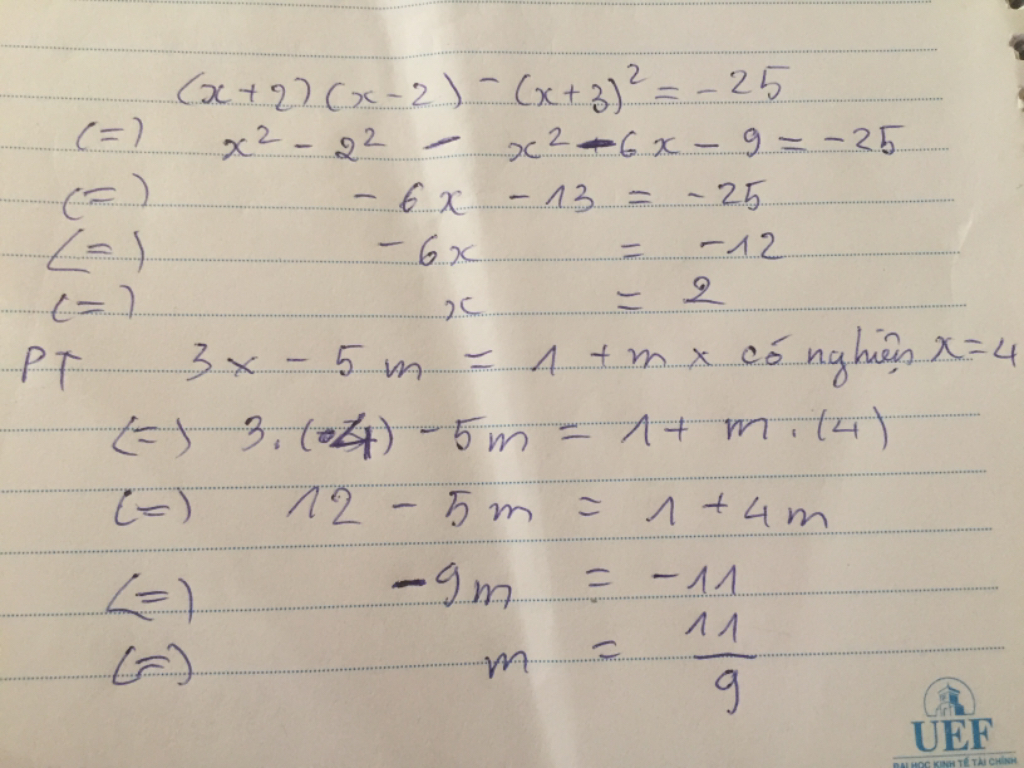 (x+2)(x-2) - (x+3)² = -25
(=) x² - 2² - x² - 6x - 9 = -25
(=) -6x - 13 = -25
(=) -6x = -12
(=) x = 2
PT 3x - 5m = 1 + mx có nghiện x=4
(=) 3.(4) - 5m = 1 + m.(4)
(=) 12 - 5m = 1 + 4m
(=) -9m = -11
(=) m = 11/9
UEF
ĐẠI HỌC KINH TẾ TÀI CHÍNH